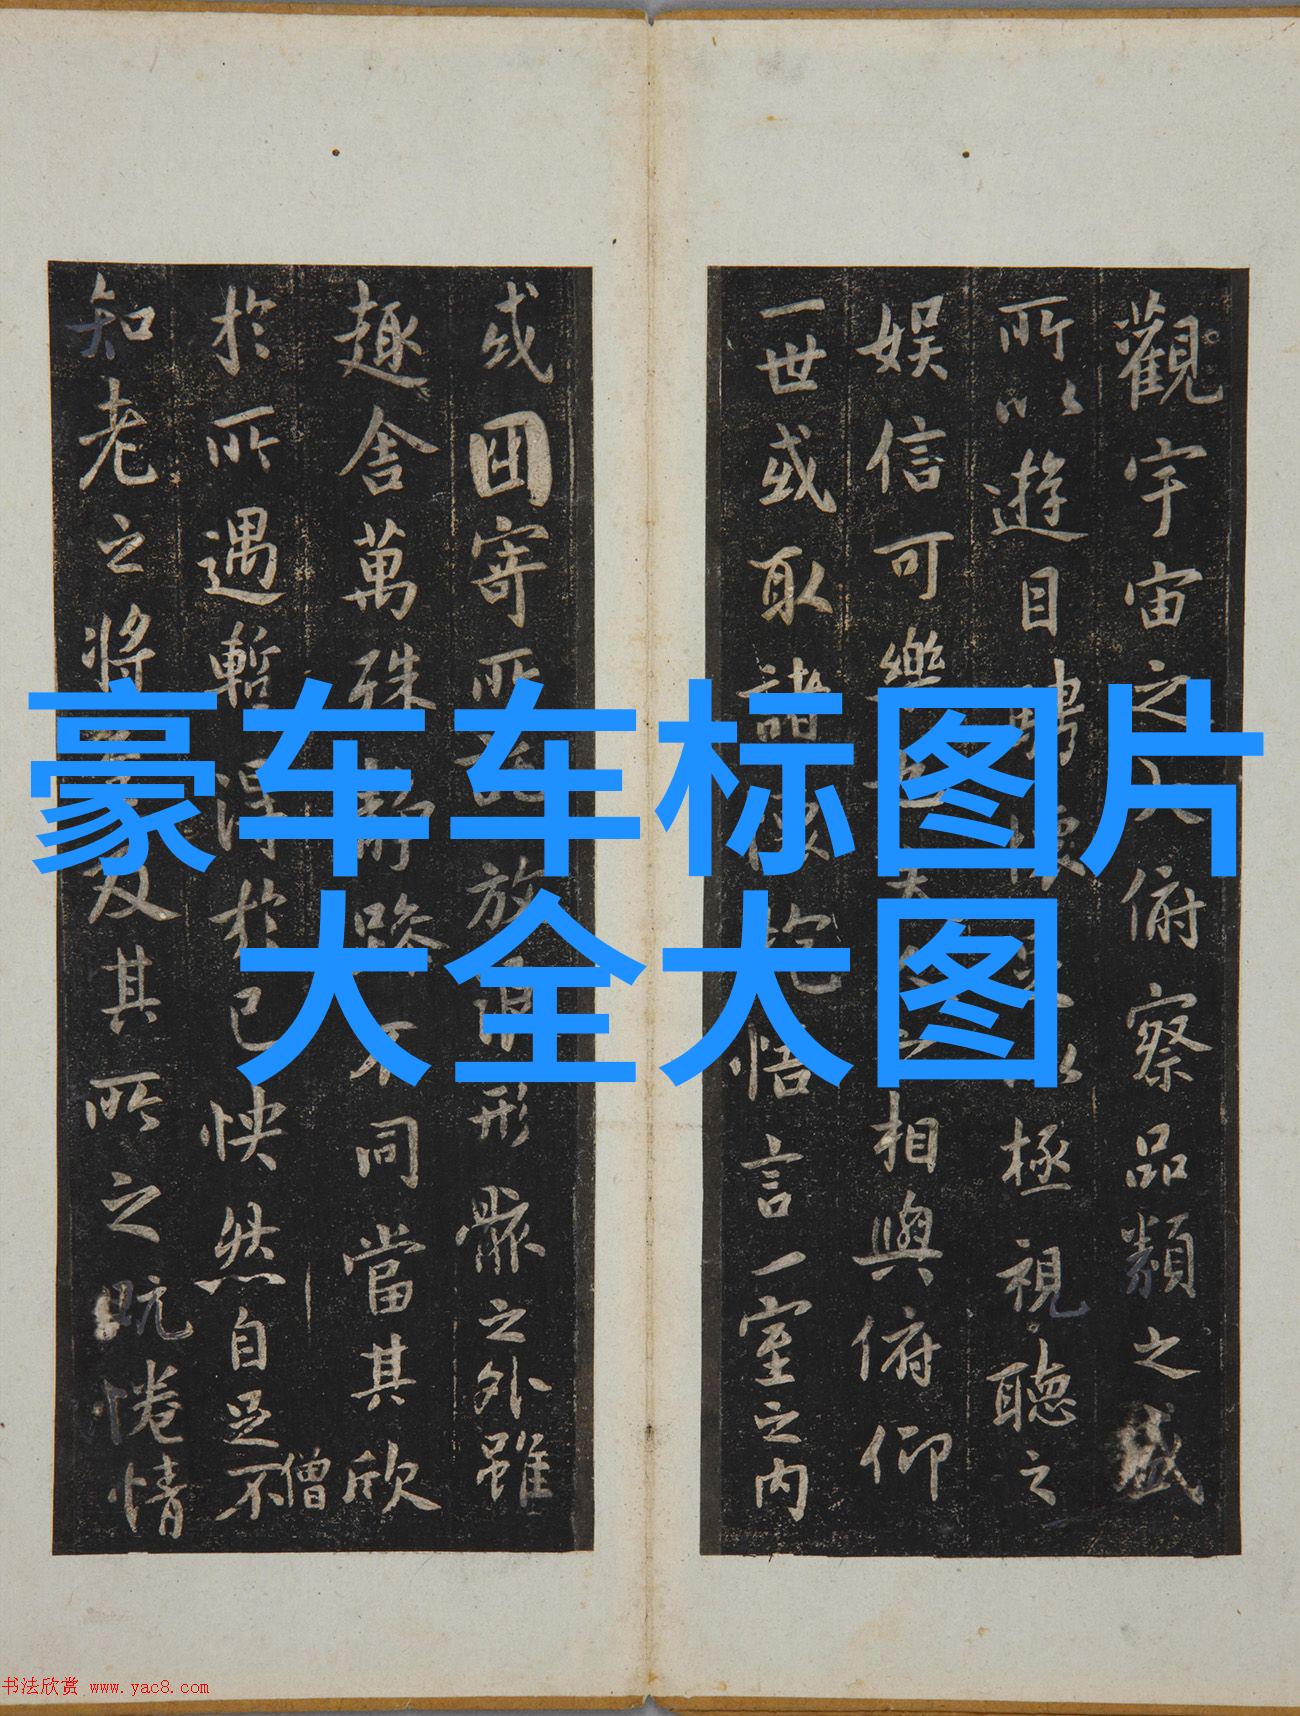 觀宇宙之大俯察品類之盛
所以遊目騁懷以極視聽之
娛信可樂也夫相與俯仰
一世或取諸懷抱悟言一室之内
或因寄所託放浪形骸之外雖
趣舍萬殊靜躁不同當其欣
於所遇暫得於己怏然自足不
僧
知老之將至及其所之既惓情
豪车车标图片
大全大图
书法欣赏 www.yac8.com